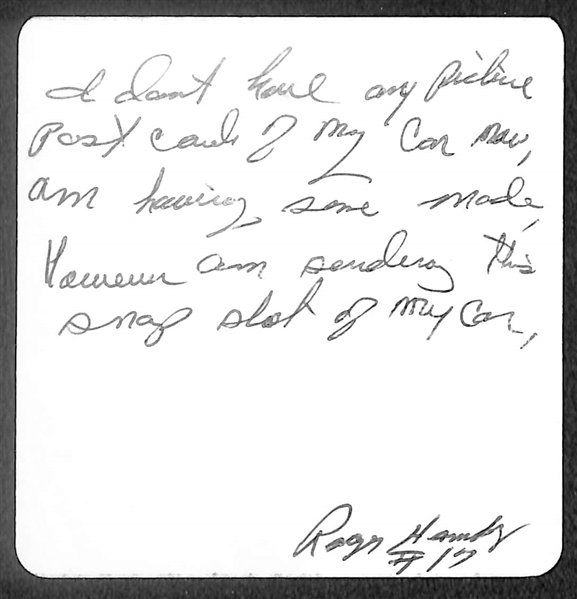 I don't have any picture
Post cards of my Car now,
am having some made,
However am sending this
snap shot of my Car,
Roger
#17